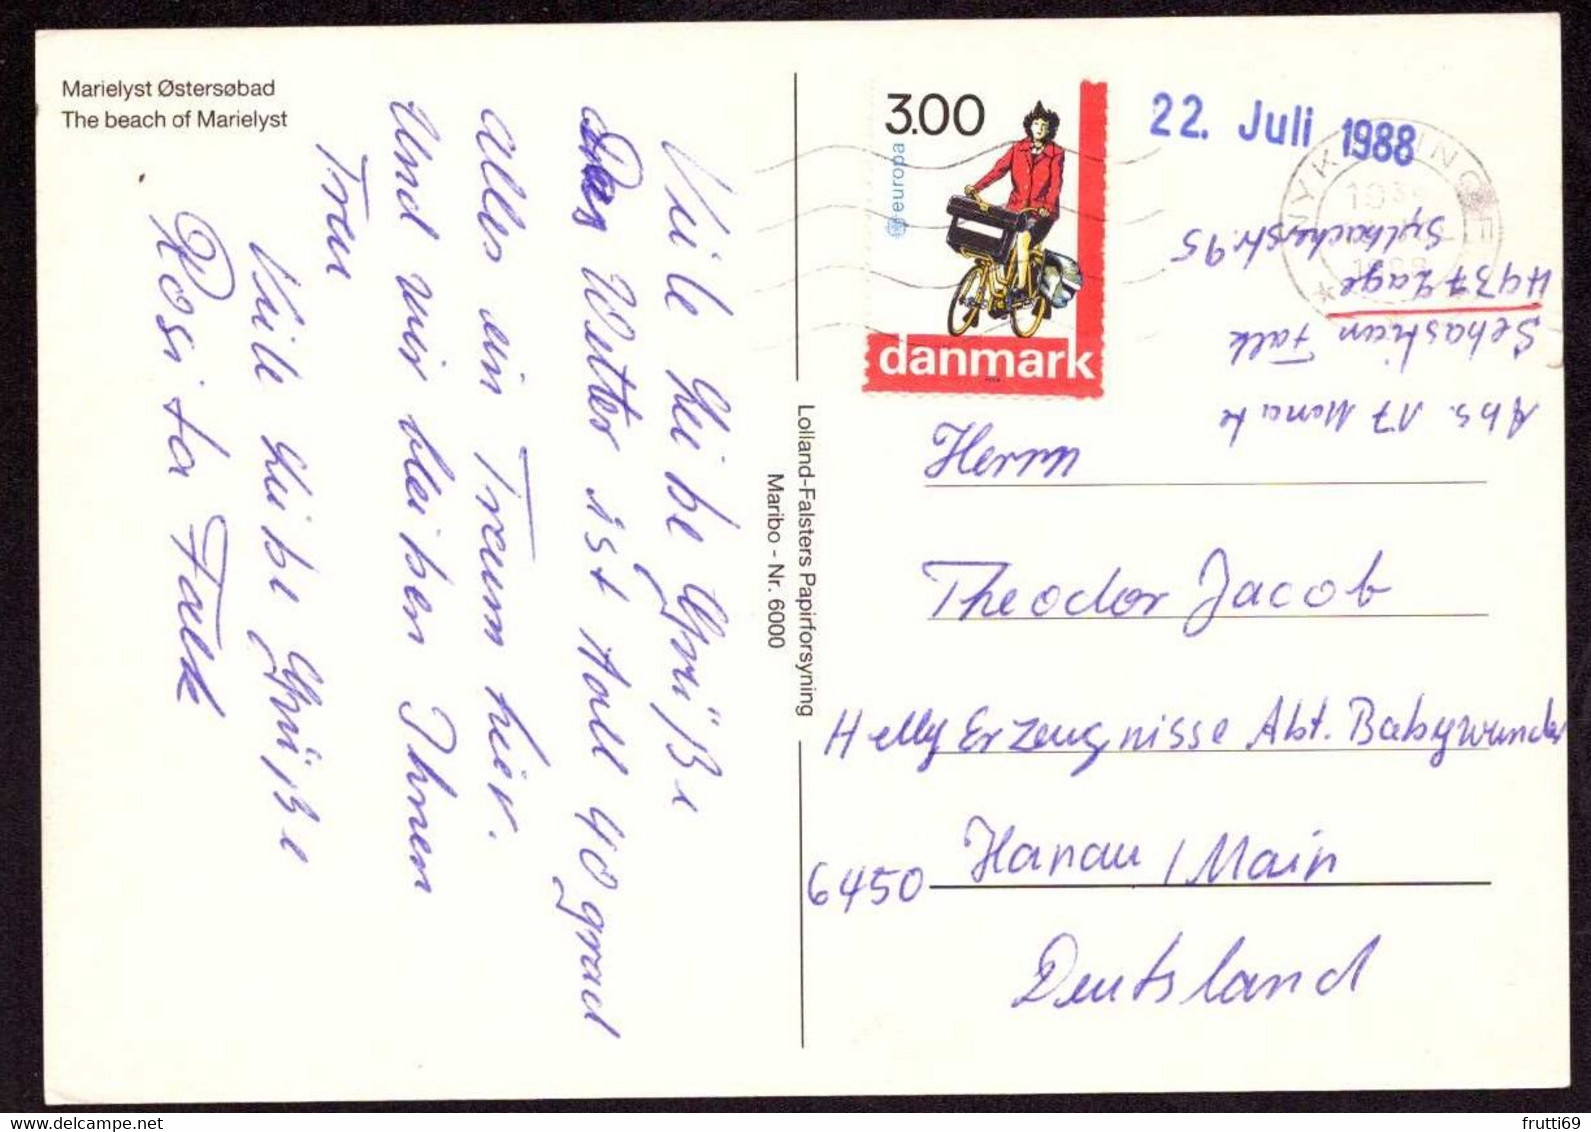 Marielyst Østersøbad
The beach of Marielyst
Viile Leibe Grüße
Das Wetter ist toll 40 grad
alles ein Traum hier.
Und wir bleiben Ihnen
Treu
Viile Leibe Grüße
Rosita Falk
Lolland-Falsters Papirforsyning
Maribo - Nr. 6000
3.00
europa
danmark
22. Juli 1988
NYKØBING
1988
Abs. 17 Monate
Sebastian Falk
4937 Lage
Sylbacherstr. 95
Herrn
Theodor Jacob
Helly Erzeugnisse Abt. Babywunder
6450 Hanau / Main
Deutsland
delcampe.net
frutti69